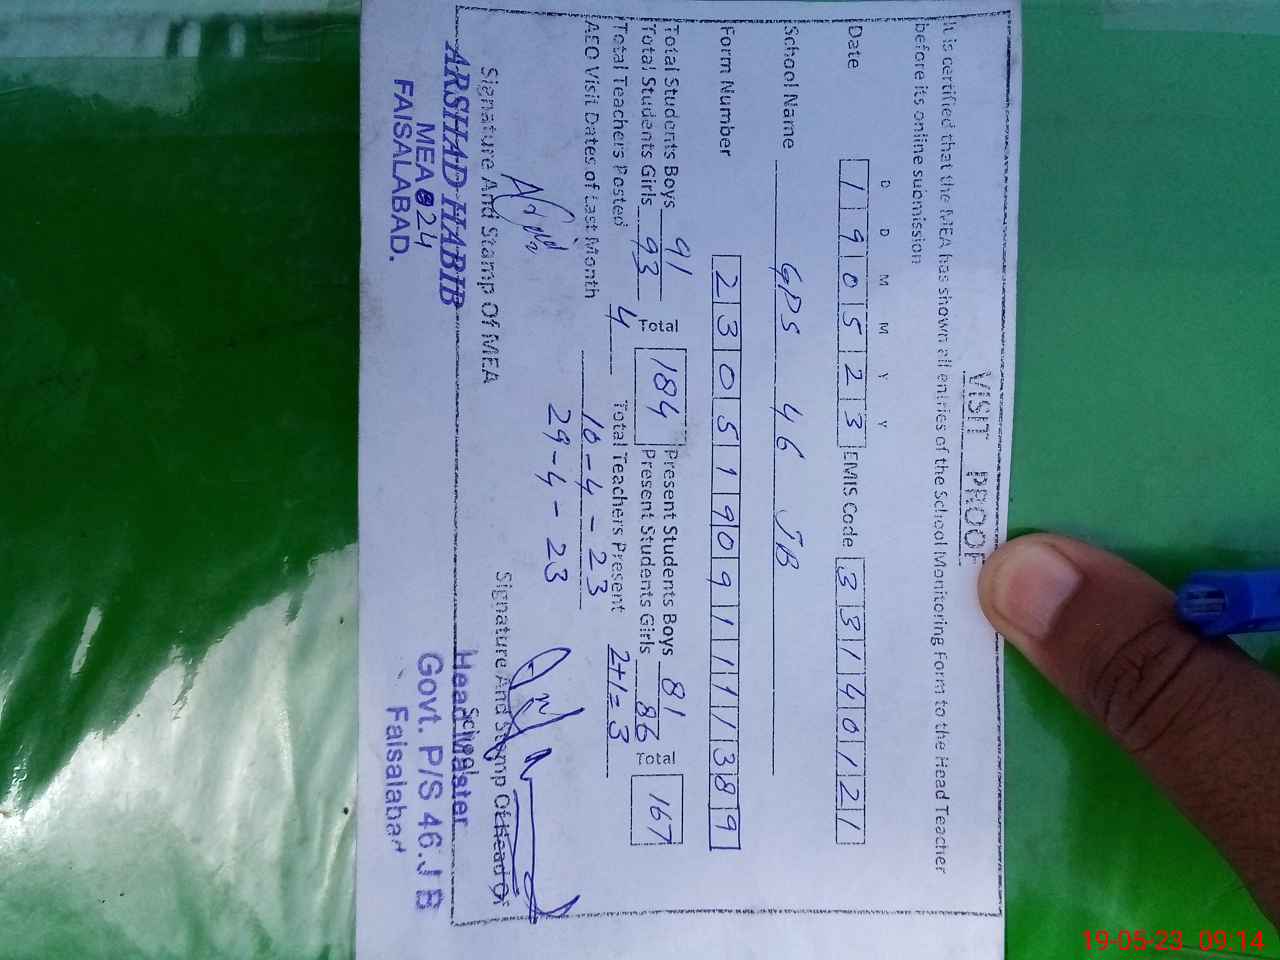 VISIT PROOF
It is certified that the MEA has shown all entries of the School Monitoring Form to the Head Teacher
before its online submission
D D M M Y Y
Date 1 9 0 5 2 3 EMIS Code 3 3 1 4 0 1 2 1
School Name GPS 46 JB
Form Number 2 3 0 5 1 9 0 9 1 1 1 1 3 8 9
Total Students Boys 91 Present Students Boys 81
Total Students Girls 93 Total 184 Present Students Girls 86 Total 167
Total Teachers Posted 4 Total Teachers Present 2+1=3
AEO Visit Dates of Last Month 10-4-23
29-4-23
Signature And Stamp Of MEA Signature And Stamp Of Head Of
School
ARSHAD HABIB
MEA 24
FAISALABAD.
Head Master
Govt. P/S 46.J B
Faisalabad
19-05-23 09:14